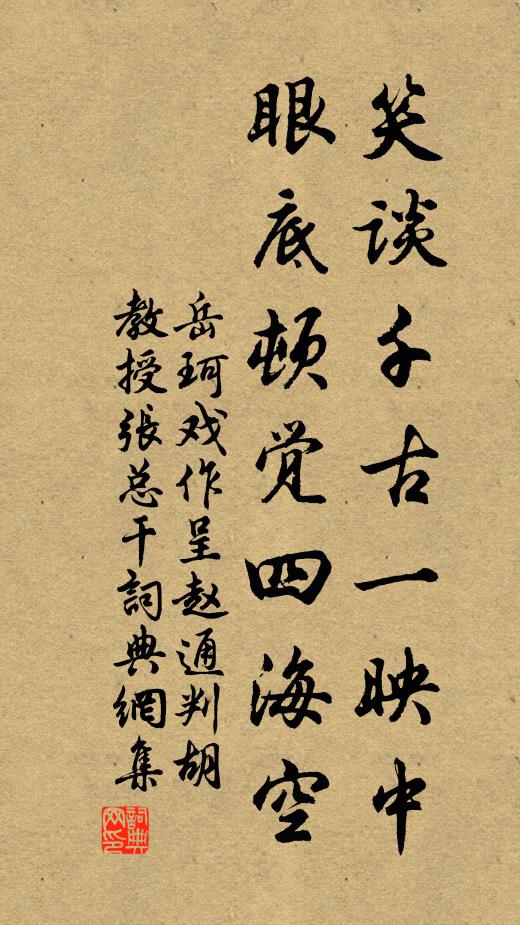 笑谈千古一映中
眼底顿觉四海空
岳珂戏作呈赵通判胡
教授張总干詞典網集
詞典网印